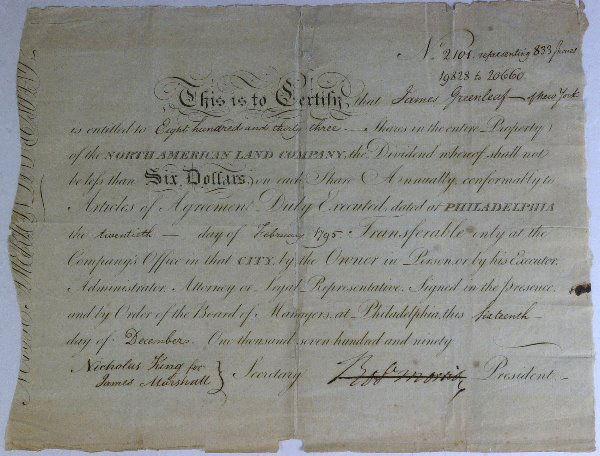 No. 2101. representing 833 shares
19828 to 20660.
This is to Certify, that James Greenleaf of New York
is entitled to Eight hundred and thirty three Shares in the entire Property
of the NORTH AMERICAN LAND COMPANY, the Dividend whereof shall not
be less than Six Dollars on each Share Annually, conformably to
Articles of Agreement Duly Executed, dated at PHILADELPHIA
the twentieth day of February 1795. Transferable only at the
Company's Office in that CITY, by the Owner in Person, or by his Executor,
Administrator, Attorney or Legal Representative. Signed in the presence
and by Order of the Board of Managers, at Philadelphia, this sixteenth
day of December One thousand seven hundred and ninety
Nicholas King for
James Marshall } Secretary Robt Morris President